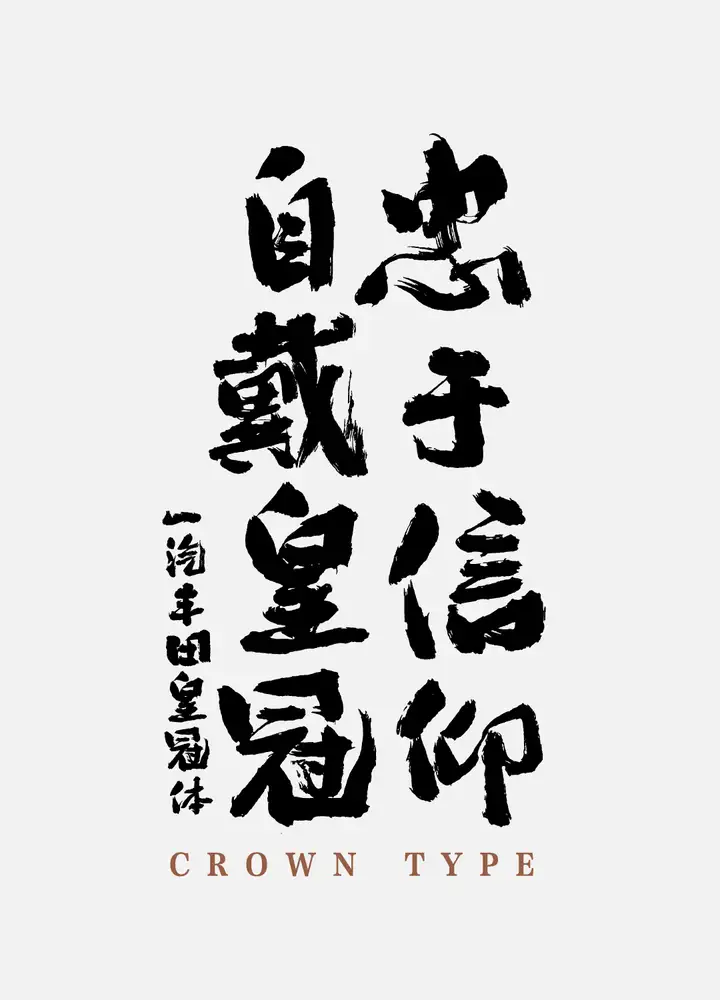 忠于信仰
自戴皇冠
一汽丰田皇冠体
CROWN TYPE